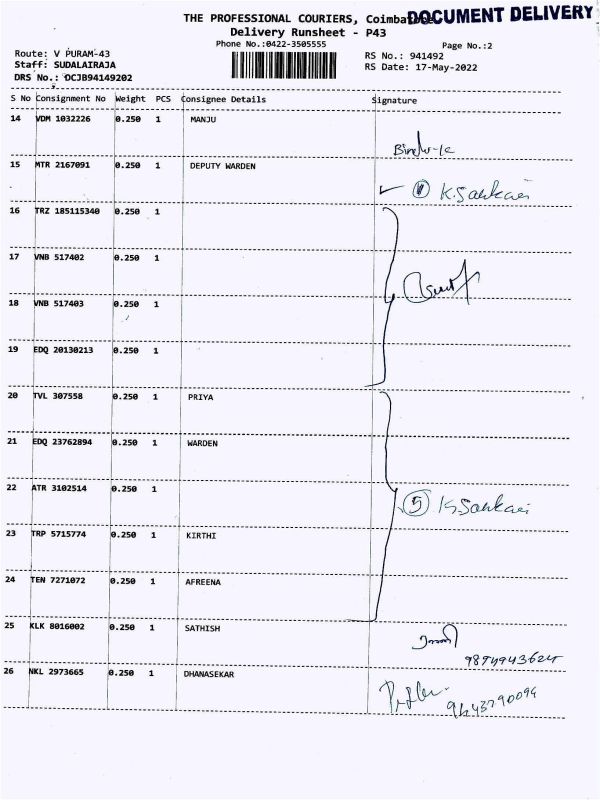 THE PROFESSIONAL COURIERS, Coimbatore
DOCUMENT DELIVERY
Delivery Runsheet - P43
Phone No.:0422-3505555
Page No.:2
Route: V PURAM-43
RS No.: 941492
Staff: SUDALAIRAJA
RS Date: 17-May-2022
DRS No.: DCJB94149202
S No Consignment No Weight PCS Consignee Details Signature
14 VDM 1032226 0.250 1 MANJU
15 MTR 2167091 0.250 1 DEPUTY WARDEN
K.Sankari
16 TRZ 185115340 0.250 1
17 VNB 517402 0.250 1
18 VNB 517403 0.250 1
19 EDQ 20130213 0.250 1
20 TVL 307558 0.250 1 PRIYA
21 EDQ 23762894 0.250 1 WARDEN
22 ATR 3102514 0.250 1
5 K.Sankari
23 TRP 5715774 0.250 1 KIRTHI
24 TEN 7271072 0.250 1 AFREENA
25 KLK 8016002 0.250 1 SATHISH
26 NKL 2973665 0.250 1 DHANASEKAR